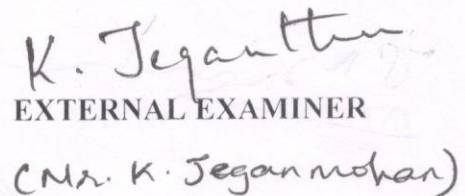 K. Jegan
EXTERNAL EXAMINER
(Mr. K. Jeganmohan)